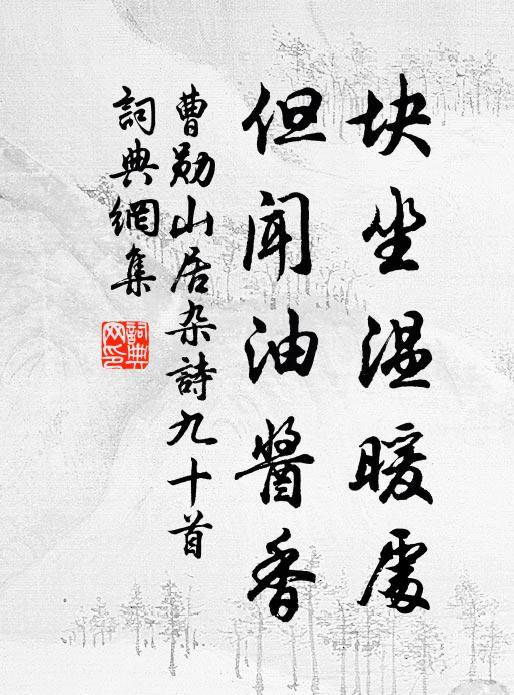 块坐湿暖處
但闻油醬香
曹勋山居杂詩九十首
詞典網集
詞典
网印